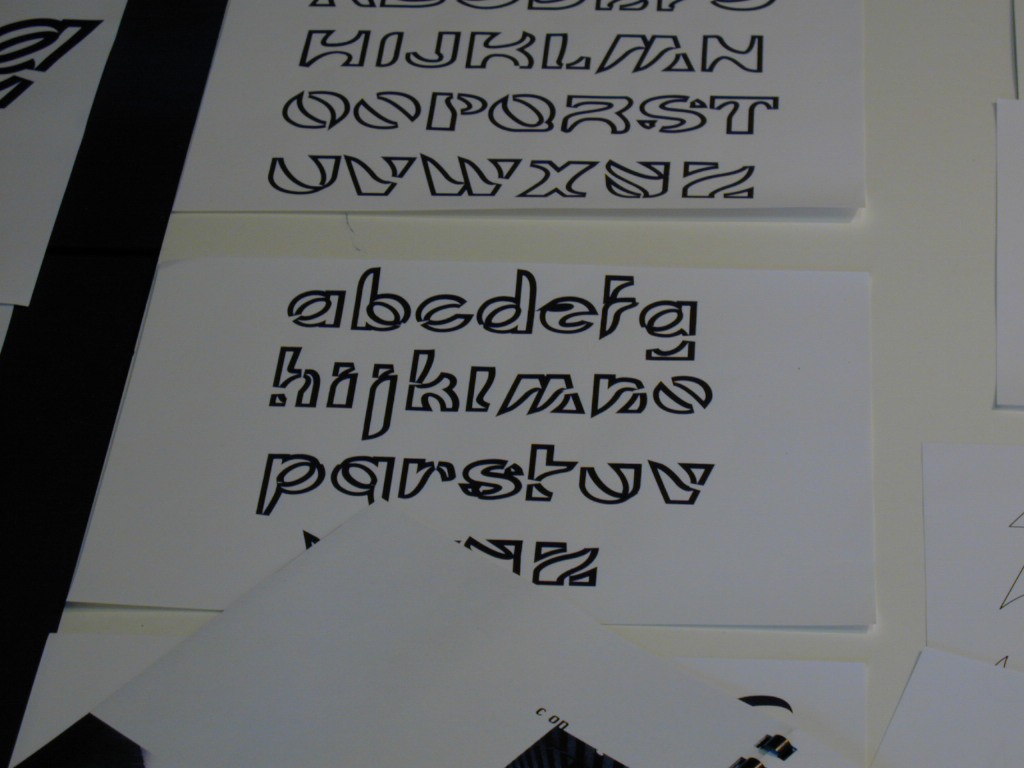 ABCDEFG
HIJKLMN
OOPQRST
UVWXYZ
abcdefg
hijklmno
pqrstuv
yz
c on